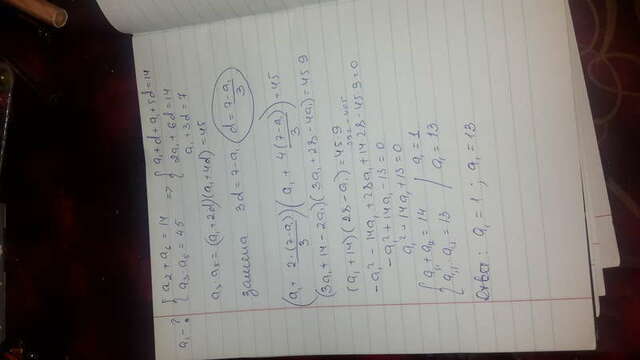 a₁ - ? { a₂ + a₆ = 14 => { a₁ + d + a₁ + 5d = 14
a₃ · a₅ = 45 { 2a₁ + 6d = 14
a₁ + 3d = 7
a₃ · a₅ = (a₁ + 2d)(a₁ + 4d) = 45
замена 3d = 7 - a₁ (d = (7 - a₁)/3)
(a₁ + 2·(7 - a₁)/3)(a₁ + 4(7 - a₁)/3) = 45
(3a₁ + 14 - 2a₁)(3a₁ + 28 - 4a₁) = 45·9
(a₁ + 14)(28 - a₁) = 45·9
-a₁² - 14a₁ + 28a₁ + 14·28 - 45·9 = 0
-a₁² + 14a₁ - 13 = 0
a₁² - 14a₁ + 13 = 0
{ a₁₁ + a₁₂ = 14 / a₁ = 1
{ a₁₁ · a₁₂ = 13 / a₁ = 13
Ответ: a₁ = 1 ; a₁ = 13